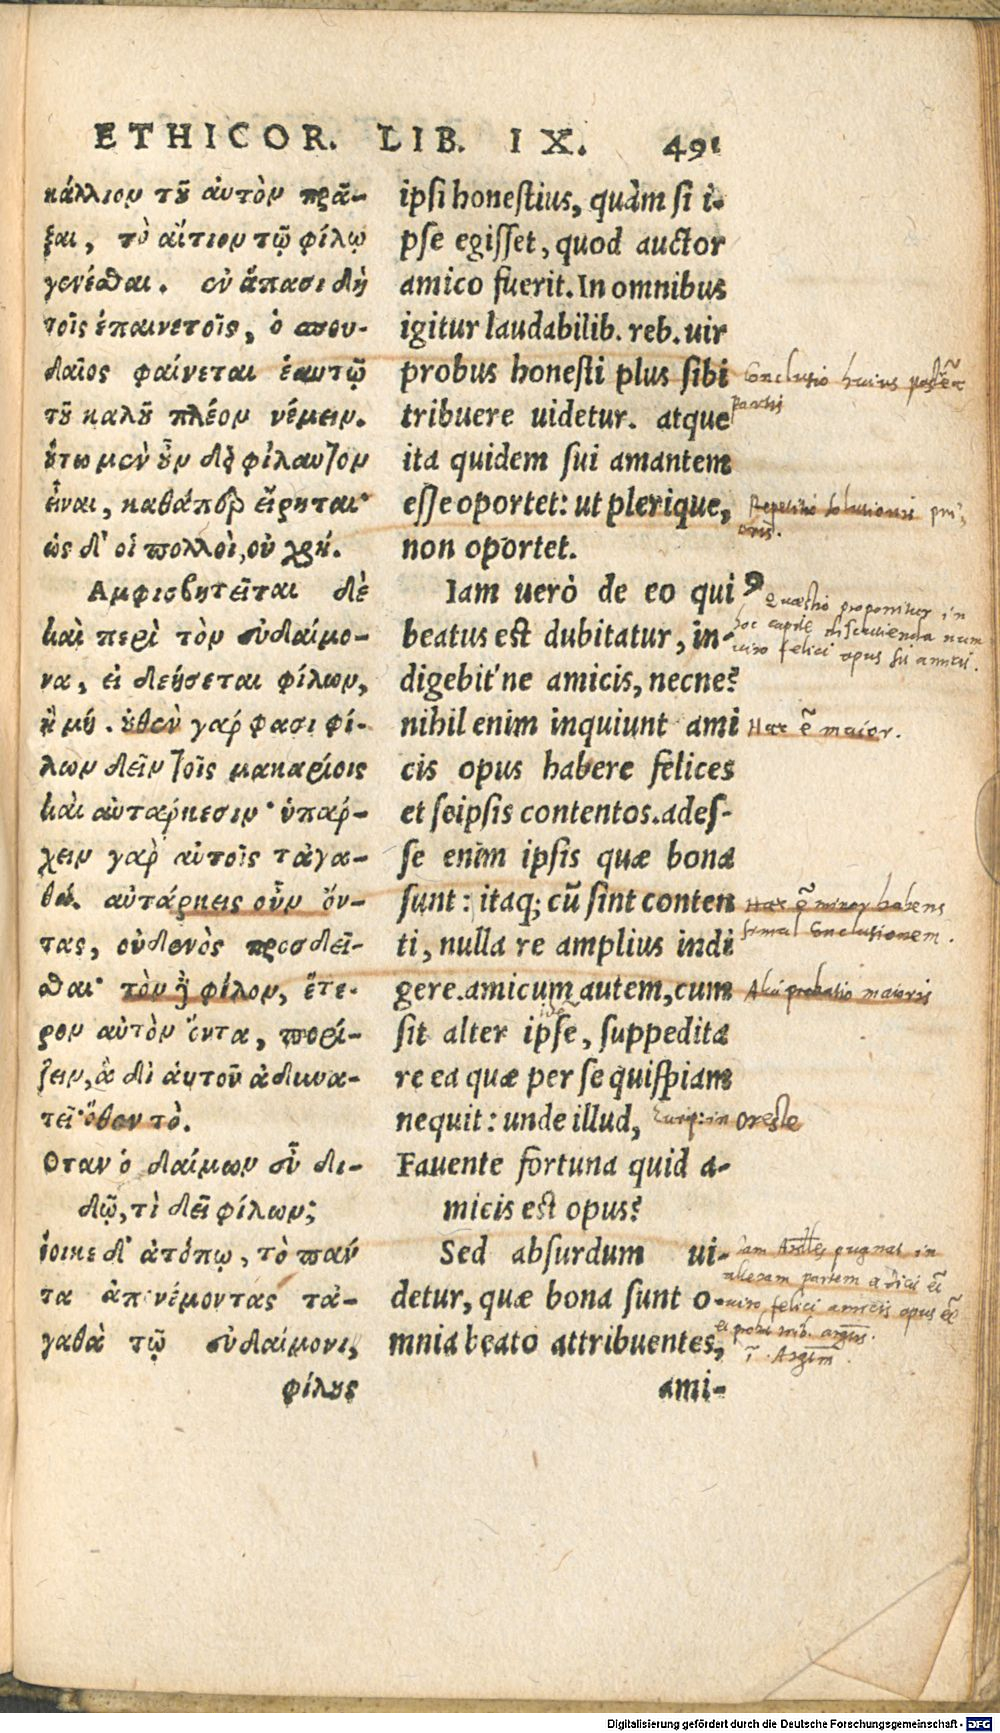 ETHICOR. LIB. IX. 491
κάλλιον τȣ͂ ἀυτὸν πρᾶ-
ξαι, τὸ αἴτιον τῷ φίλῳ
γενέσθαι. ἐν ἅπασι δὴ
τοῖς ἐπαινετοῖς, ὁ σπου-
δαῖος φαίνεται ἑαυτῷ
τȣ͂ καλȣ͂ πλέον νέμειν.
ȣ́τω μὲν ȣ͂ν δεῖ φίλαυτον
εἶναι, καθάπερ εἴρηται·
ὡς δ' οἱ πολλοὶ, οὐ χρή.
Αμφισβητεῖται δὲ
καὶ περὶ τὸν εὐδαίμο-
να, εἰ δεήσεται φίλων,
ἢ μή. ȣ̓θὲν γάρ φασι φί-
λων δεῖν τοῖς μακαρίοις
καὶ αὐτάρκεσιν· ὑπάρ-
χειν γὰρ αὐτοῖς τἀγα-
θά. αὐτάρκεις οὖν ὄν-
τας, οὐδενὸς προσδεῖ-
σθαι· τὸν δὲ φίλον, ἕτε-
ρον αὐτὸν ὄντα, πορί-
ζειν, ἃ δι' ἁυτοῦ ἀδυνα-
τεῖ· ὅθεν τὸ.
Οταν ὁ δαίμων εὖ δι-
δῷ, τί δεῖ φίλων;
ἔοικε δ' ἀτόπῳ, τὸ πάν
τα ἀπονέμοντας τἀ-
γαθὰ τῷ εὐδαίμονι,
φίλȣς
ipsi honestius, quàm si i-
pse egisset, quod auctor
amico fuerit. In omnibus
igitur laudabilib. reb. uir
probus honesti plus sibi
tribuere uidetur. atque
ita quidem sui amantem
esse oportet: ut plerique,
non oportet.
Iam uerò de eo qui
beatus est dubitatur, in-
digebit'ne amicis, necne?
nihil enim inquiunt ami
cis opus habere felices
et seipsis contentos. ades-
se enim ipsis quæ bona
sunt: itaq; cũ sint conten
ti, nulla re amplius indi
gere. amicum autem, cum
sit alter ipse, suppedita
re ea quæ per se quispiam
nequit: unde illud,
Fauente fortuna quid a-
micis est opus?
Sed absurdum ui-
detur, quæ bona sunt o-
mnia beato attribuentes,
ami-
Conclusio huius
partis
Repetitio solutionis pri
oris.
9
Quæstio proponitur in
hoc capite discutienda num
uiro felici opus sit amicis.
Hæc ē maior.
Hæc ē minor habens
simul Conclusionem.
Alia probatio maioris
Eurip: in Oreste
Iam pugnat in
alteram partem
uiro felici amicis opus